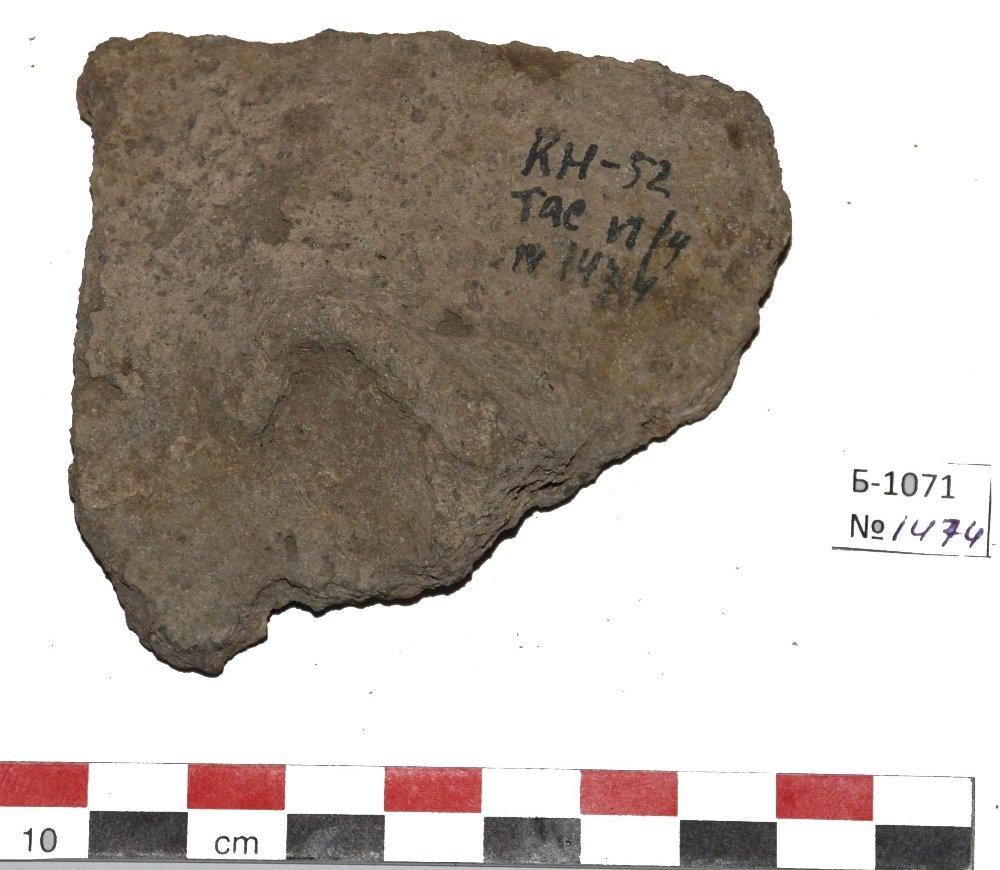 КН-52
Тас п/ч
№ 1474
Б-1071
№ 1474
10 cm